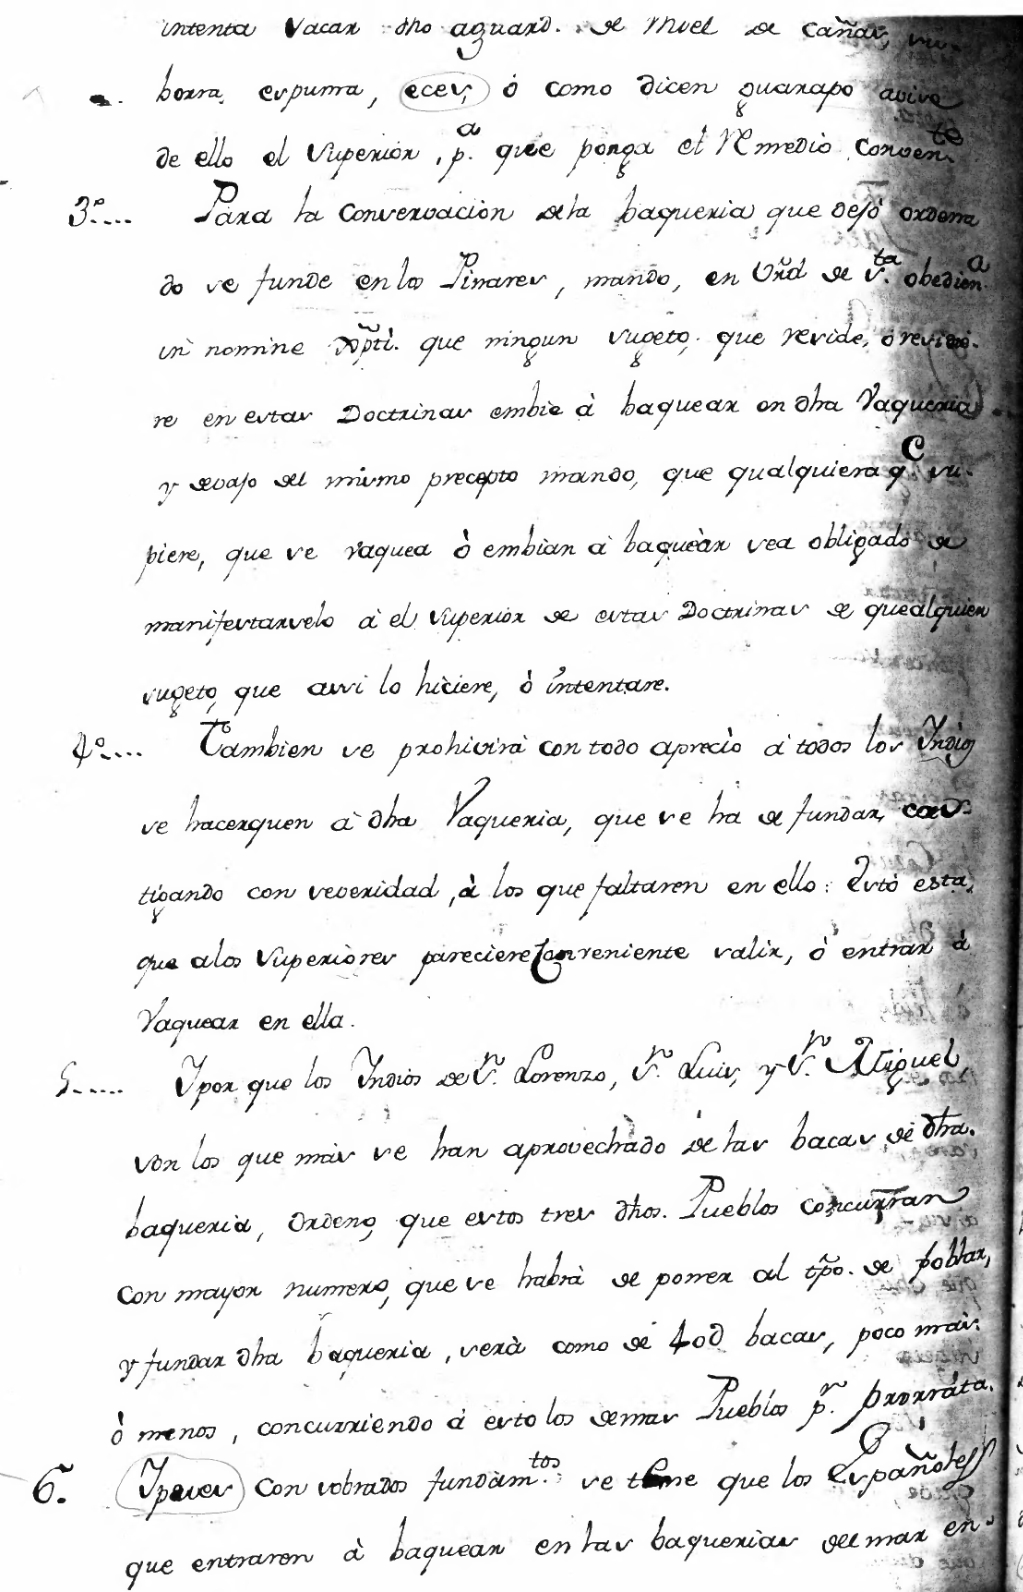 intenta sacar dho aguard. de miel de cañas, su-
borra, espuma, eces, ó como dicen guarapo avise
de ello el superior, p.ª que ponga el Remedio conven.te
3º.... Para la conservacion dela baqueria que dejó ordena
do se funde en los Pinares, mando, en Vrd de s.ta obedien.a
in nomine Xpti. que ningun sugeto, que reside, ó residie-
re en estas Doctrinas embie à baquear en dha Vaqueria
y devajo del mismo precepto mando, que qualquiera q.e su-
piere, que se vaquea ò embian a baqueàr sea obligado de
manifestarselo à el superior de estas Doctrinas de quealquier
sugeto, que assi lo hiciere, ò intentare.
4º.... Tambien se prohivirà con todo aprecio à todos los Indios
se hacerquen à dha Vaqueria, que se ha de fundar, cas-
tigando con severidad, à los que faltaren en ello: Esto esta,
que alos superiores pareciere conveniente salir, ò entrar à
Vaquear en ella.
5..... Ypor que los Indios de S.n Lorenzo, S.n Luis, y S.n Miguel
son los que màs se han aprovechado de las bacas de dha.
baqueria, ordeno, que estos tres dhos. Pueblos concurran
con mayor numero, que se habrà de poner al tpo. de poblar,
y fundar dha baqueria, serà como de 40d bacas, poco màs.
ò menos, concurriendo à esto los demas Pueblos p.r prorràta.
6. Ypues con sobrados fundam.tos se teme que los Españoles
que entraren à baquear en las baquerias del mar en-